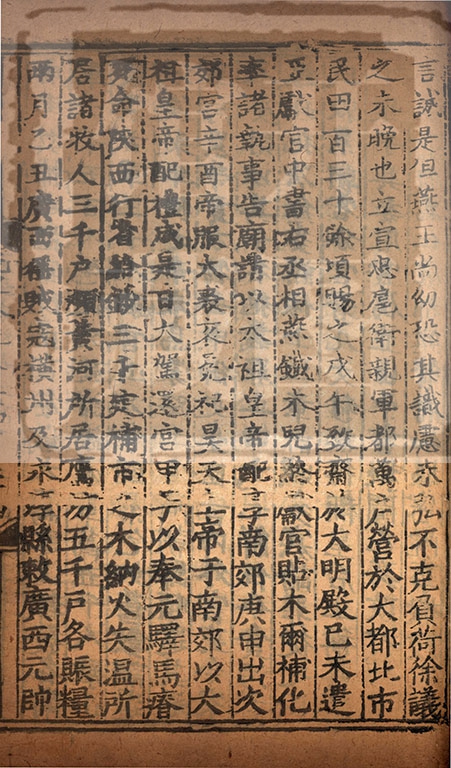 言誠是但燕王尚幼恐其識慮未弘不克負荷徐議
之未晚也立宣忠扈衛親軍都萬戶營於大都北市
民田百三十餘頃賜之戊午致齋於大明殿己未遣
亞獻官中書右丞相燕鐵木兒終獻官貼木爾補化
率諸執事告廟請以太祖皇帝配享南郊庚申出次
郊宮辛酉帝服大裘衮冕祀昊天上帝于南郊以大
祖皇帝配禮成是日大駕還宮甲子以奉元驛馬瘠
死命陝西行省給鈔三千定補市之木納火失温所
居諸牧人三千戶瀕黃河所居鷹坊五千戶各賑糧
兩月乙丑廣西猺賊寇橫州及永淳縣敕廣西元帥